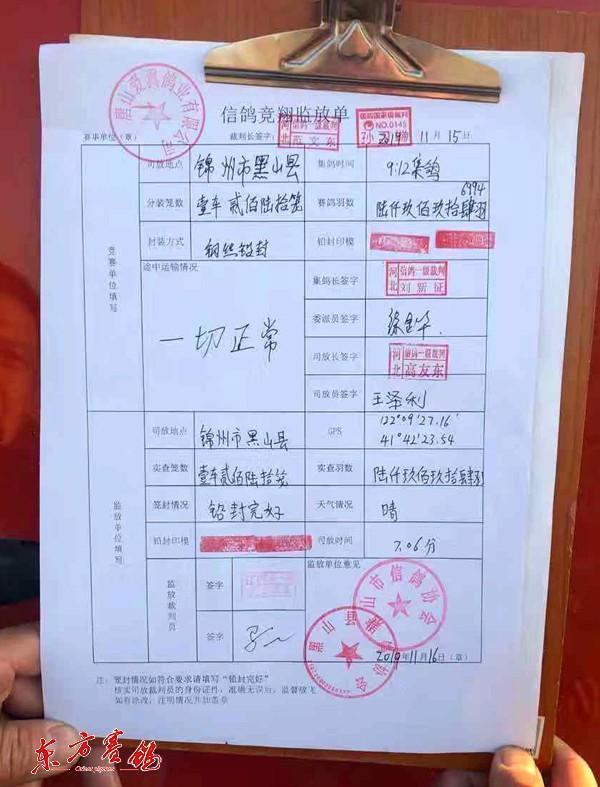 信鸽竞翔监放单
赛事单位(章) 裁判长签字: 2019 11月15日
信鸽国家级裁判
NO.0145
河北 信鸽一级裁判
司放地点 锦州市黑山县 集鸽时间 9:12集鸽
6994
分装笼数 壹车贰佰陆拾笼 赛鸽羽数 陆仟玖佰玖拾肆羽
封装方式 钢丝铅封 铅封印模
竞赛单位填写
途中运输情况
一切正常
集鸽长签字 河北 信鸽一级裁判 刘新征
委派员签字
司放长签字 河北 信鸽一级裁判 高友东
司放员签字 王泽利
监放单位填写
司放地点 锦州市黑山县 GPS 122°09'27.16'
41°42'23.54
实查笼数 壹车贰佰陆拾笼 实查羽数 陆仟玖佰玖拾肆羽
笼封情况 铅封完好 天气情况 晴
铅封印模 司放时间 7.06分
监放裁判员
签字
签字
监放单位意见
市信鸽协会
2019年11月16日(章)
注:笼封情况如符合要求请填写"铅封完好"
核实司放裁判员的身份证件,准确无误后,监督放飞
如有涂改,注明情况并加盖章
东方赛鸽